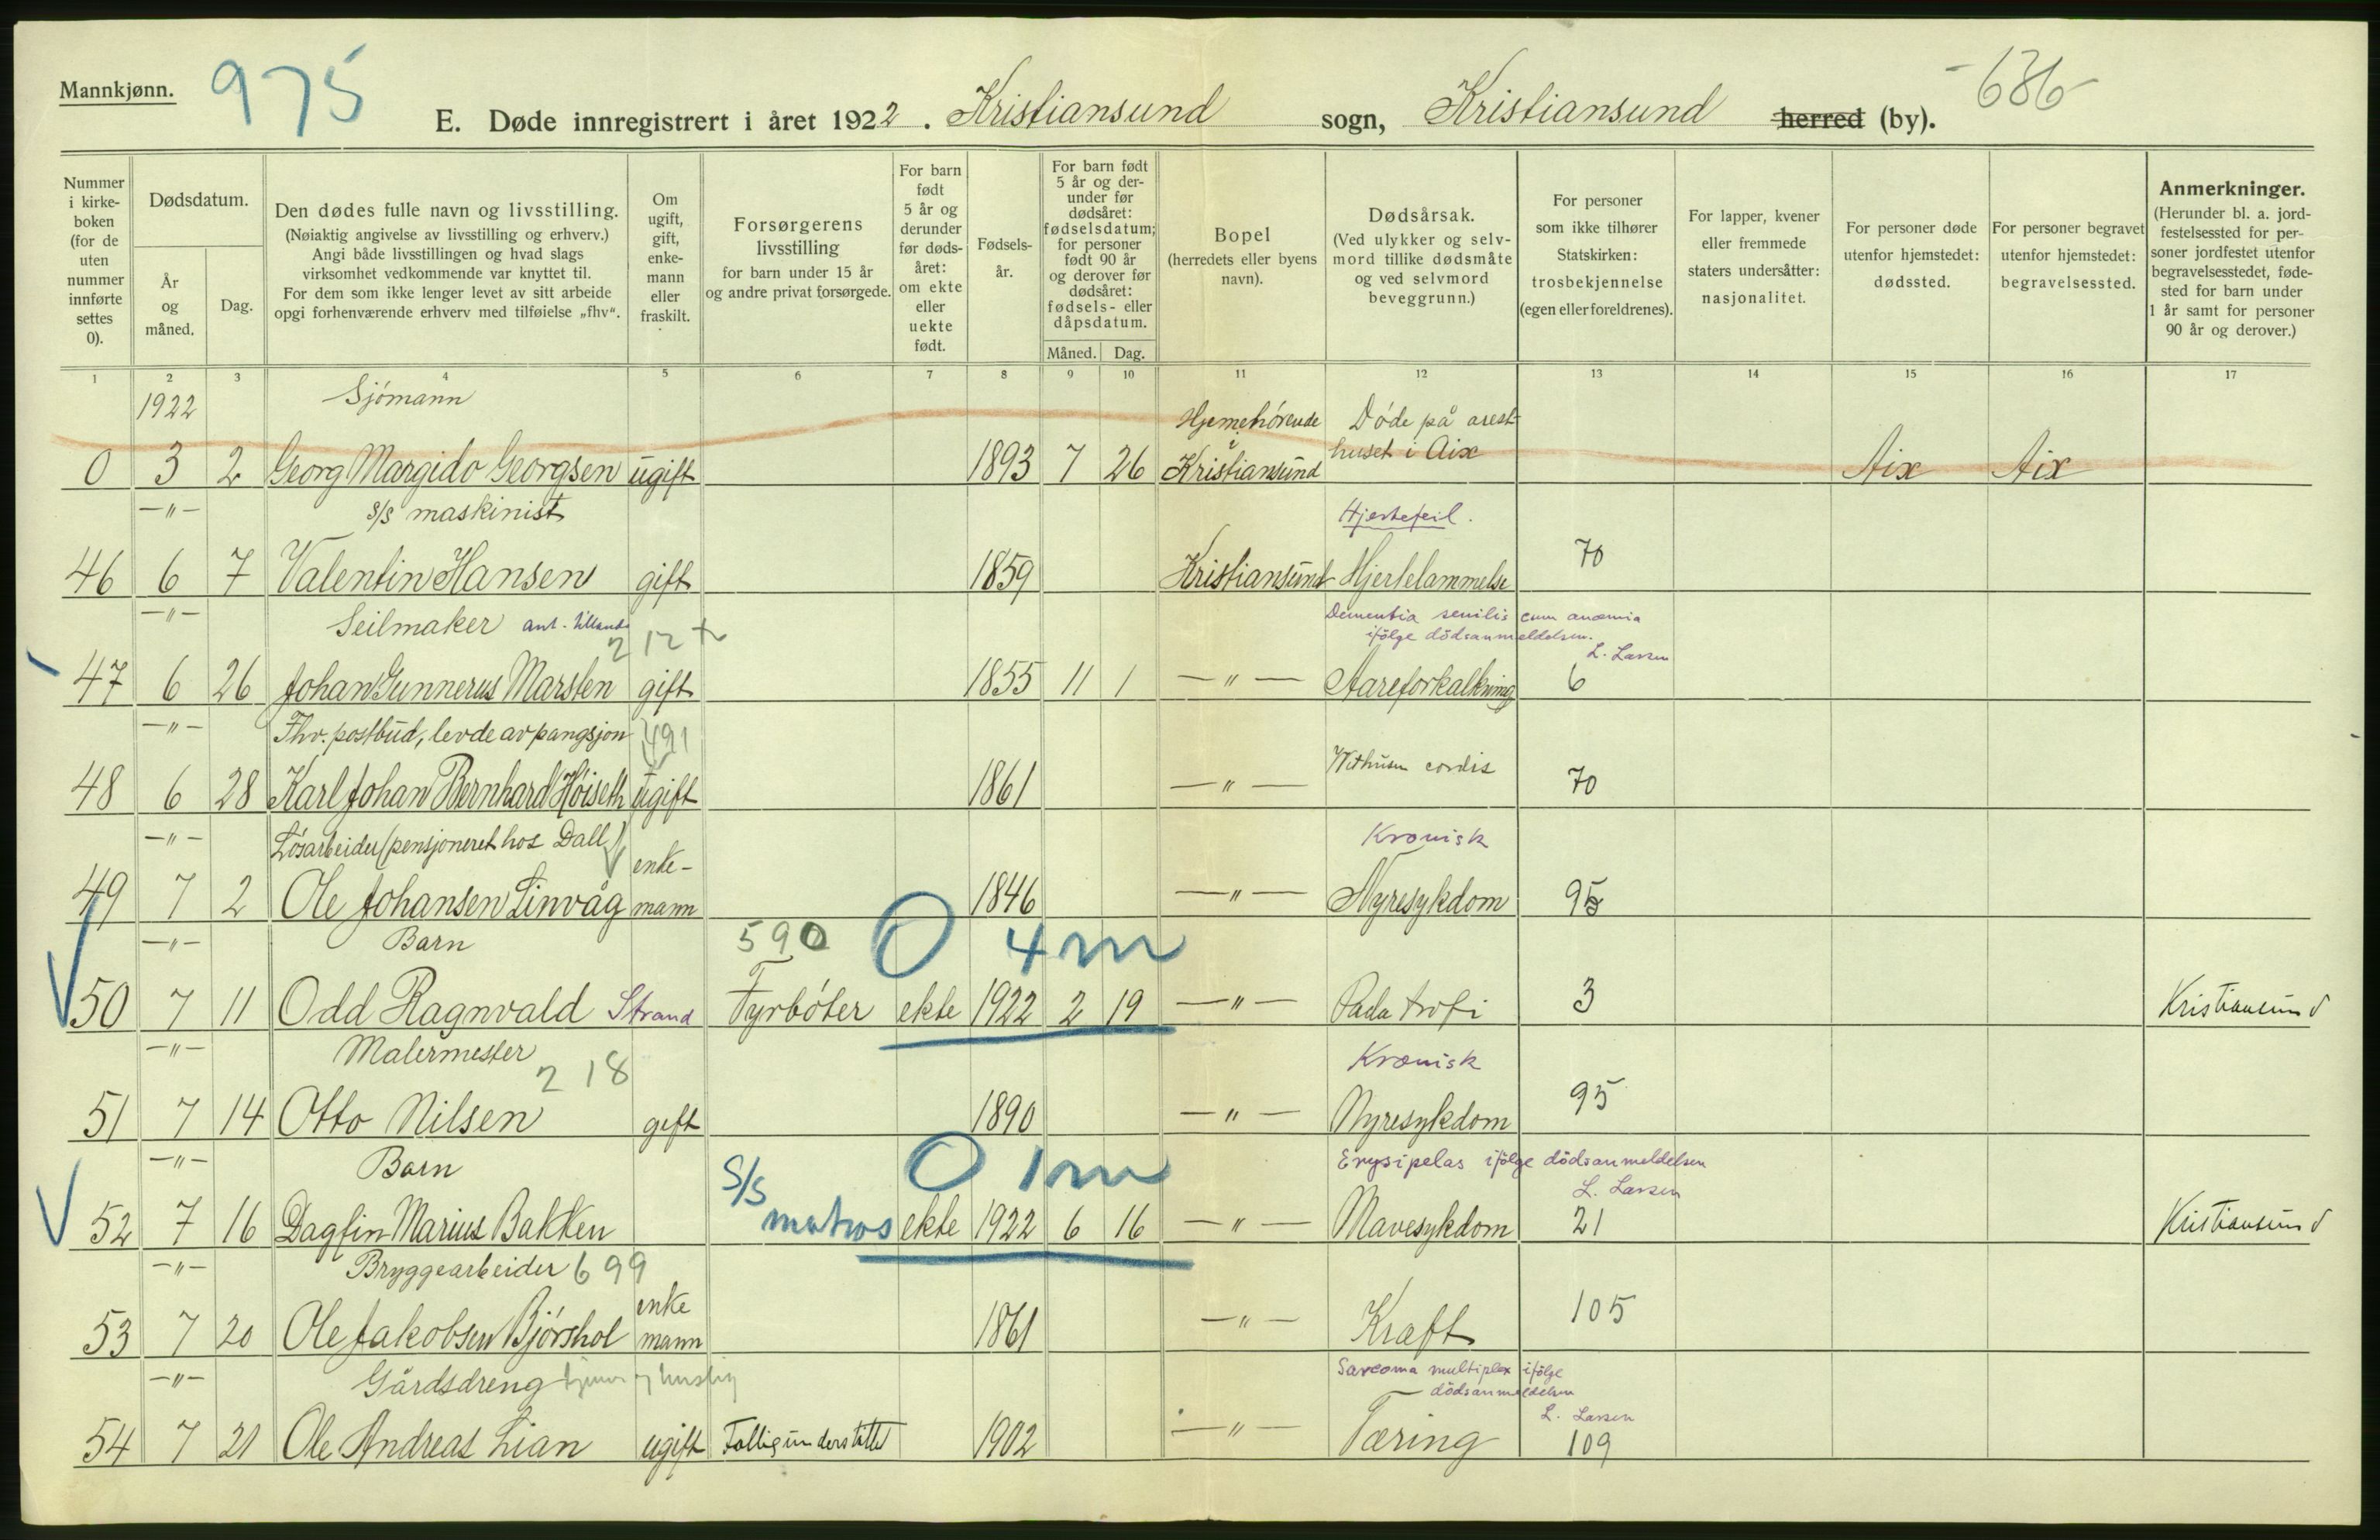 Mannkjønn.
975
E. Døde innregistrert i året 1922. Kristiansund sogn, Kristiansund herred (by).
-636-
Nummer i kirkeboken (for de uten nummer innførte settes 0).
Dødsdatum.
År og måned.
Dag.
Den dødes fulle navn og livsstilling.
(Nøiaktig angivelse av livsstilling og erhverv.)
Angi både livsstillingen og hvad slags
virksomhet vedkommende var knyttet til.
For dem som ikke lenger levet av sitt arbeide
opgi forhenværende erhverv med tilføielse „fhv“.
Om ugift, gift, enkemann eller fraskilt.
Forsørgerens livsstilling
for barn under 15 år
og andre privat forsørgede.
For barn født 5 år og derunder før dødsåret: om ekte eller uekte født.
Fødselsår.
For barn født 5 år og derunder før dødsåret: fødselsdatum; for personer født 90 år og derover før dødsåret: fødsels- eller dåpsdatum.
Måned. Dag.
Bopel
(herredets eller byens navn).
Dødsårsak.
(Ved ulykker og selvmord tillike dødsmåte og ved selvmord beveggrunn.)
For personer som ikke tilhører Statskirken: trosbekjennelse (egen eller foreldrenes).
For lapper, kvener eller fremmede staters undersåtter: nasjonalitet.
For personer døde utenfor hjemstedet: dødssted.
For personer begravet utenfor hjemstedet: begravelsessted.
Anmerkninger.
(Herunder bl. a. jordfestelsessted for personer jordfestet utenfor begravelsesstedet, fødested for barn under 1 år samt for personer 90 år og derover.)
1 2 3 4 5 6 7 8 9 10 11 12 13 14 15 16 17
1922 Sjómann Hjemehörende Döde på arest-
0 3 2 Georg Margido Georgsen ugift 1893 7 26 i Kristiansund huset i Aix Aix Aix
—"— s/s maskinist Hjertefeil.
46 6 7 Valentin Hansen gift 1859 Kristiansund Hjertelammelse 70
—"— Seilmaker 212 Dementia senilis cum anæmia
ifölge dödsanmeldelsen.
L. Larsen
47 6 26 Johan Gunnerus Marsten gift 1855 11 1 —"— Aareforkalkning 6
—"— Fhv. postbud, levde av pangsjon 491
48 6 28 Karl Johan Bernhard Höiseth ugift 1861 —"— cordis 70
—"— Lösarbeider (pensjoneret hos Dall) Kronisk
49 7 2 Ole Johansen Linvåg enkemann 1846 —"— Nyresykdom 95
—"— Barn 590 0 4m
50 7 11 Odd Ragnvald Strand Fyrböter ekte 1922 2 19 —"— Pada trofi 3 Kristiansund
—"— Malermester 218 Kronisk
51 7 14 Otto Nilsen gift 1890 —"— Nyresykdom 95
—"— Barn 0 1m Erysipelas ifölge dödsanmeldelsen
L. Larsen
52 7 16 Dagfin Marius Bakken S/s matros ekte 1922 6 16 —"— Mavesykdom 21 Kristiansund
—"— Bryggearbeider 699
53 7 20 Ole Jakobsen Bjórshol enkemann 1861 —"— Kræft 105
—"— Gårdsdreng Sarcoma multiplex ifölge
dödsanmeldelsen
L. Larsen
54 7 21 Ole Andreas Lian ugift 1902 —"— Tæring 109